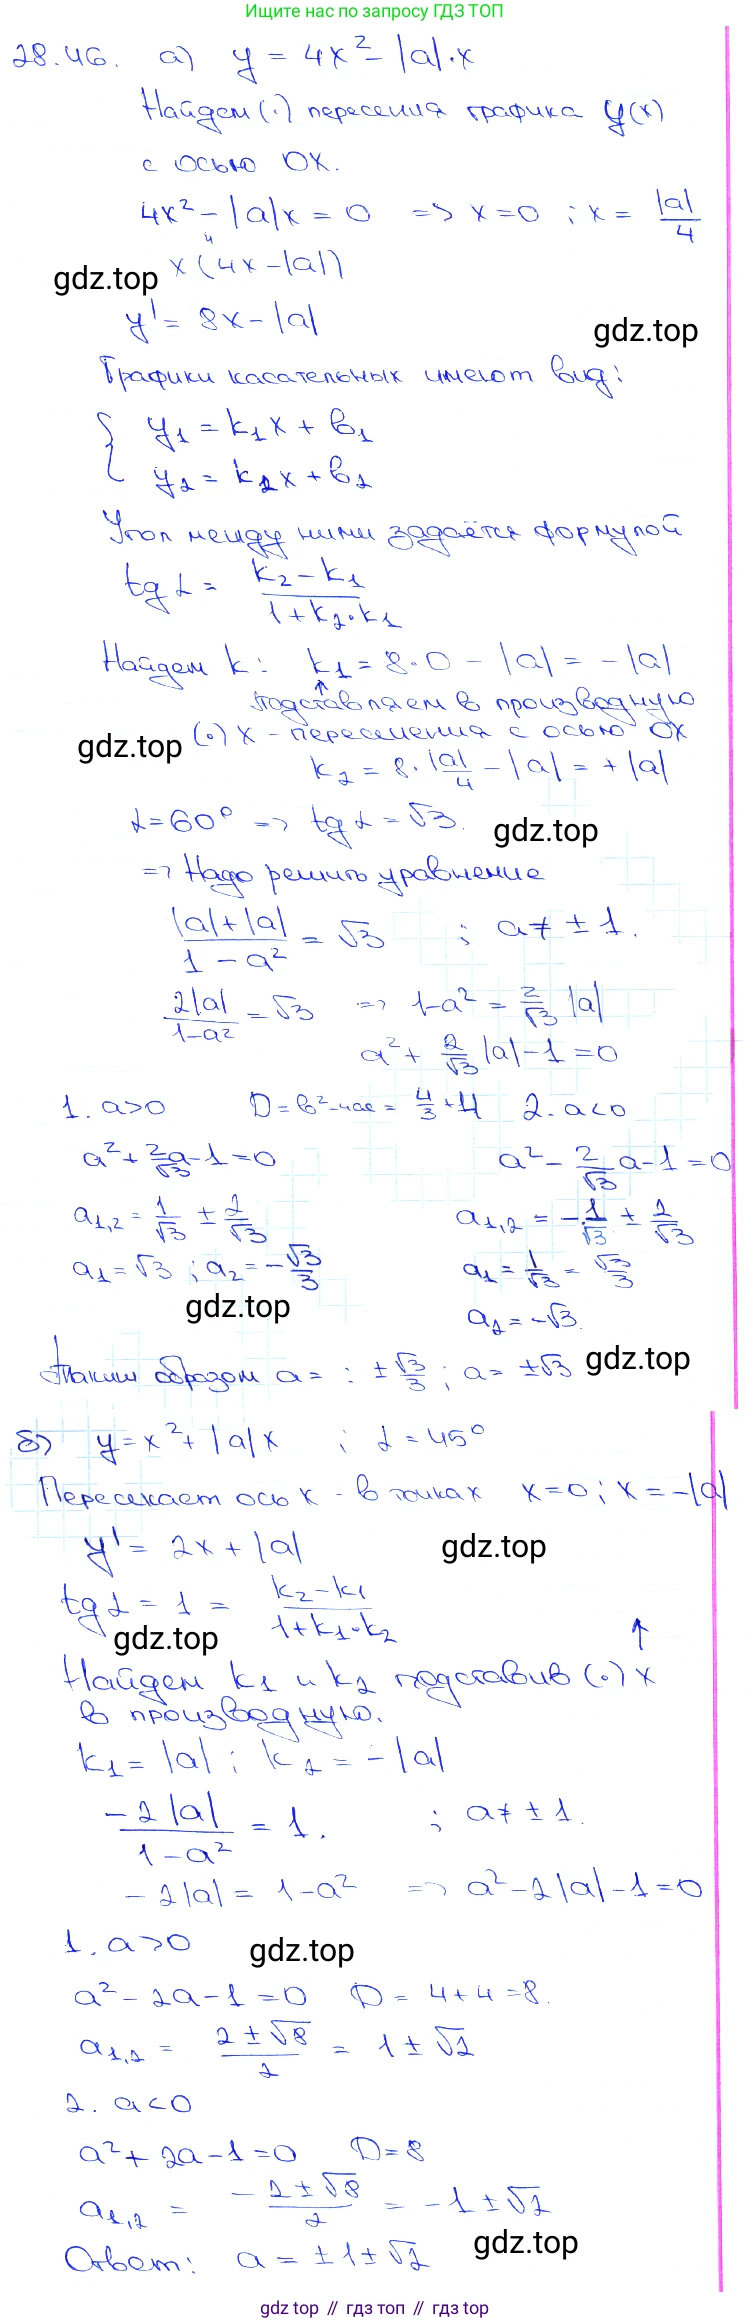 Ищите нас по запросу ГДЗ ТОП
28.46. а) y = 4x² - |a|·x
Найдем (·) пересения графика y(x)
с осью OX.
4x² - |a|x = 0 => x = 0 ; x = |a|/4
x(4x - |a|)
gdz.top
y' = 8x - |a|
gdz.top
Графики касательных имеют вид:
{ y₁ = k₁x + b₁
y₂ = k₂x + b₂
Угол между ними задаётся формулой
tg α = (k₂ - k₁)/(1 + k₂·k₁)
Найдем k: k₁ = 8·0 - |a| = -|a|
↑ подставляем в производную
(·) x - пересечения с осью OX
gdz.top
k₂ = 8·|a|/4 - |a| = +|a|
α = 60° => tg α = √3.
gdz.top
=> Надо решить уравнение
(|a| + |a|)/(1 - a²) = √3 ; a ≠ ± 1.
2|a|/(1 - a²) = √3 => 1 - a² = 2/√3 |a|
a² + 2/√3 |a| - 1 = 0
1. a > 0 D = b² - 4ac = 4/3 + 4 2. a < 0
a² + 2a/√3 - 1 = 0 a² - 2/√3 a - 1 = 0
a₁,₂ = 1/√3 ± 2/√3 a₁,₂ = -1/√3 ± 2/√3
a₁ = √3 ; a₂ = -√3/3 a₁ = 1/√3 = √3/3
gdz.top
a₂ = -√3.
Таким образом a = : ± √3/3 ; a = ±√3
gdz.top
б) y = x² + |a|x ; α = 45°
Пересекает ось x - в точках x = 0 ; x = -|a|
y' = 2x + |a|
gdz.top
tg α = 1 = (k₂ - k₁)/(1 + k₁·k₂)
gdz.top
↑
Найдем k₁ и k₂ подставив (·) x
в производную.
k₁ = |a| ; k₂ = -|a|
-2|a|/(1 - a²) = 1. ; a ≠ ± 1.
-2|a| = 1 - a² => a² - 2|a| - 1 = 0
1. a > 0
gdz.top
a² - 2a - 1 = 0 D = 4 + 4 = 8.
a₁,₂ = (2 ± √8)/2 = 1 ± √2
2. a < 0
a² + 2a - 1 = 0 D = 8
a₁,₂ = (-2 ± √8)/2 = -1 ± √2
Ответ: a = ± 1 ± √2
gdz.top
gdz.top // гдз топ // gdz top